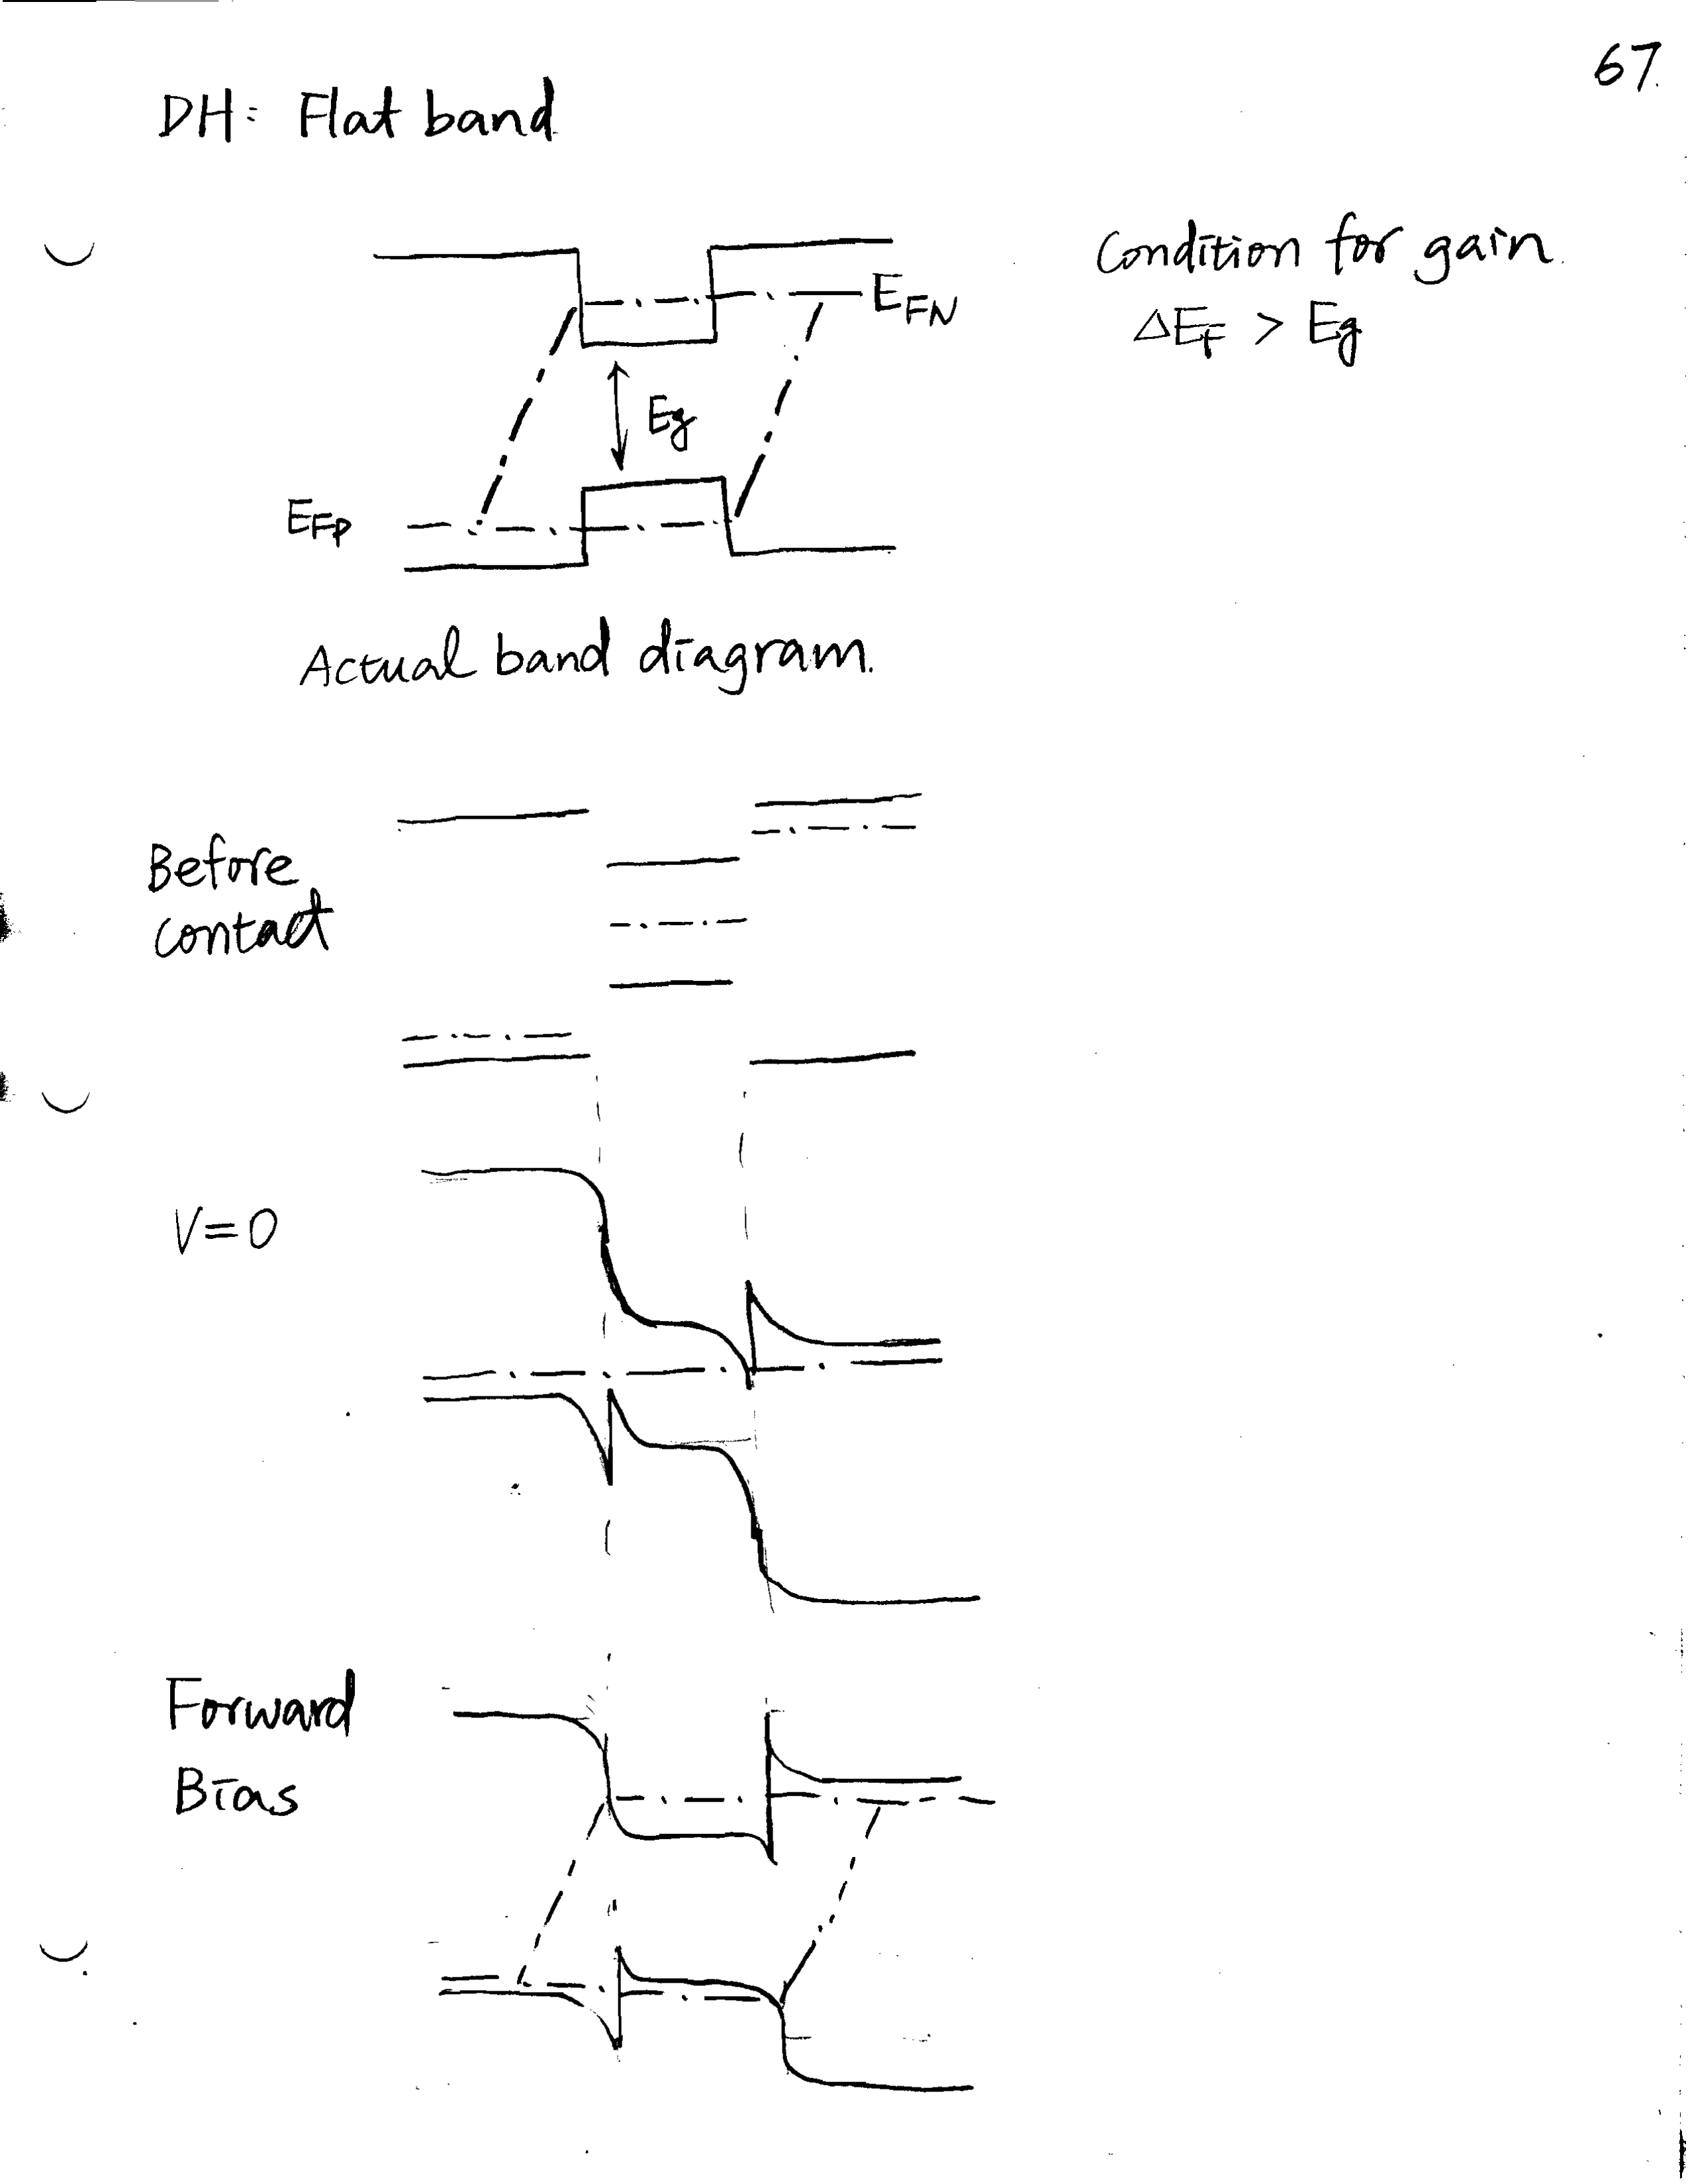 67.
DH: Flat band
Condition for gain.
ΔEF > Eg
EFN
Eg
EFP
Actual band diagram.
Before
contact
V=0
Forward
Bias